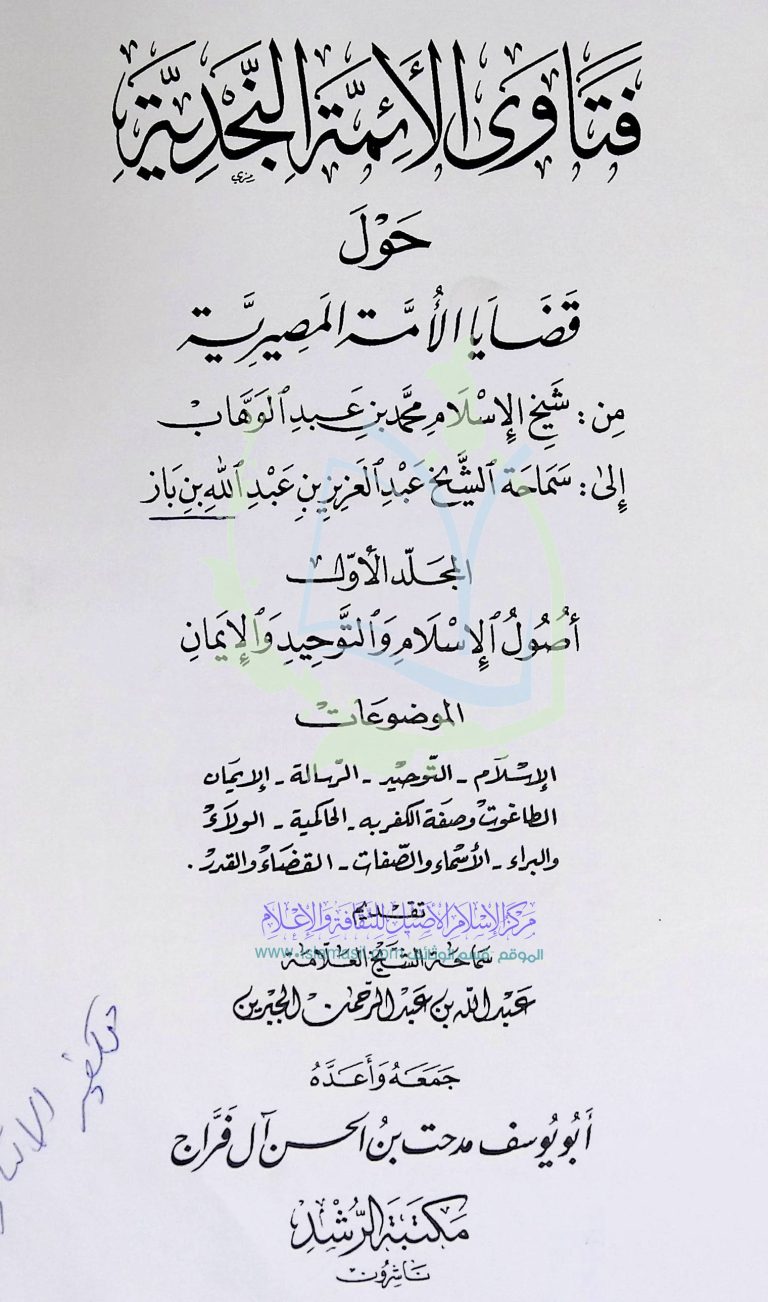 فَتَاوَى الأَئِمَّة النَّجْدِيَّة
حَوْلَ
قَضَايَا الأُمَّة المَصِيرِيَّة
مِن: شَيخ الإِسْلَامِ مُحَمَّد بنِ عَبدِ الوَهَّاب
إِلىٰ: سَمَاحَة الشَّيخ عَبْدِ العَزِيزِ بنِ عَبْدِ اللهِ بنِ بَاز
المجَلّد الأوّل
أصُولُ الإِسْلَامِ وَالتَّوحِيدِ وَالإِيمَانِ
الموضوعَات
الإسْلَام - التّوحيد - الرّسالة - الإيمَان
الطاغوت وصفة الكفر به - الحاكمية - الولَاء
والبراء - الأسْماء والصّفات - القضَاء والقدر.
تقديم
مركز الإسلام الأصيل للثقافة والإعلام
سَمَاحة الشيخ العَلّامة
الموقع: قسم الوثائق: www.islamasil.com
عَبْد اللّه بن عَبْد الرّحمٰن الجبْرين
جَمَعَهُ وَأعَدَّهُ
أَبُو يُوسف مدحت بنُ الحسن آل فَرَّاج
مَكتَبَة الرُّشْدِ
نَاشِرُون